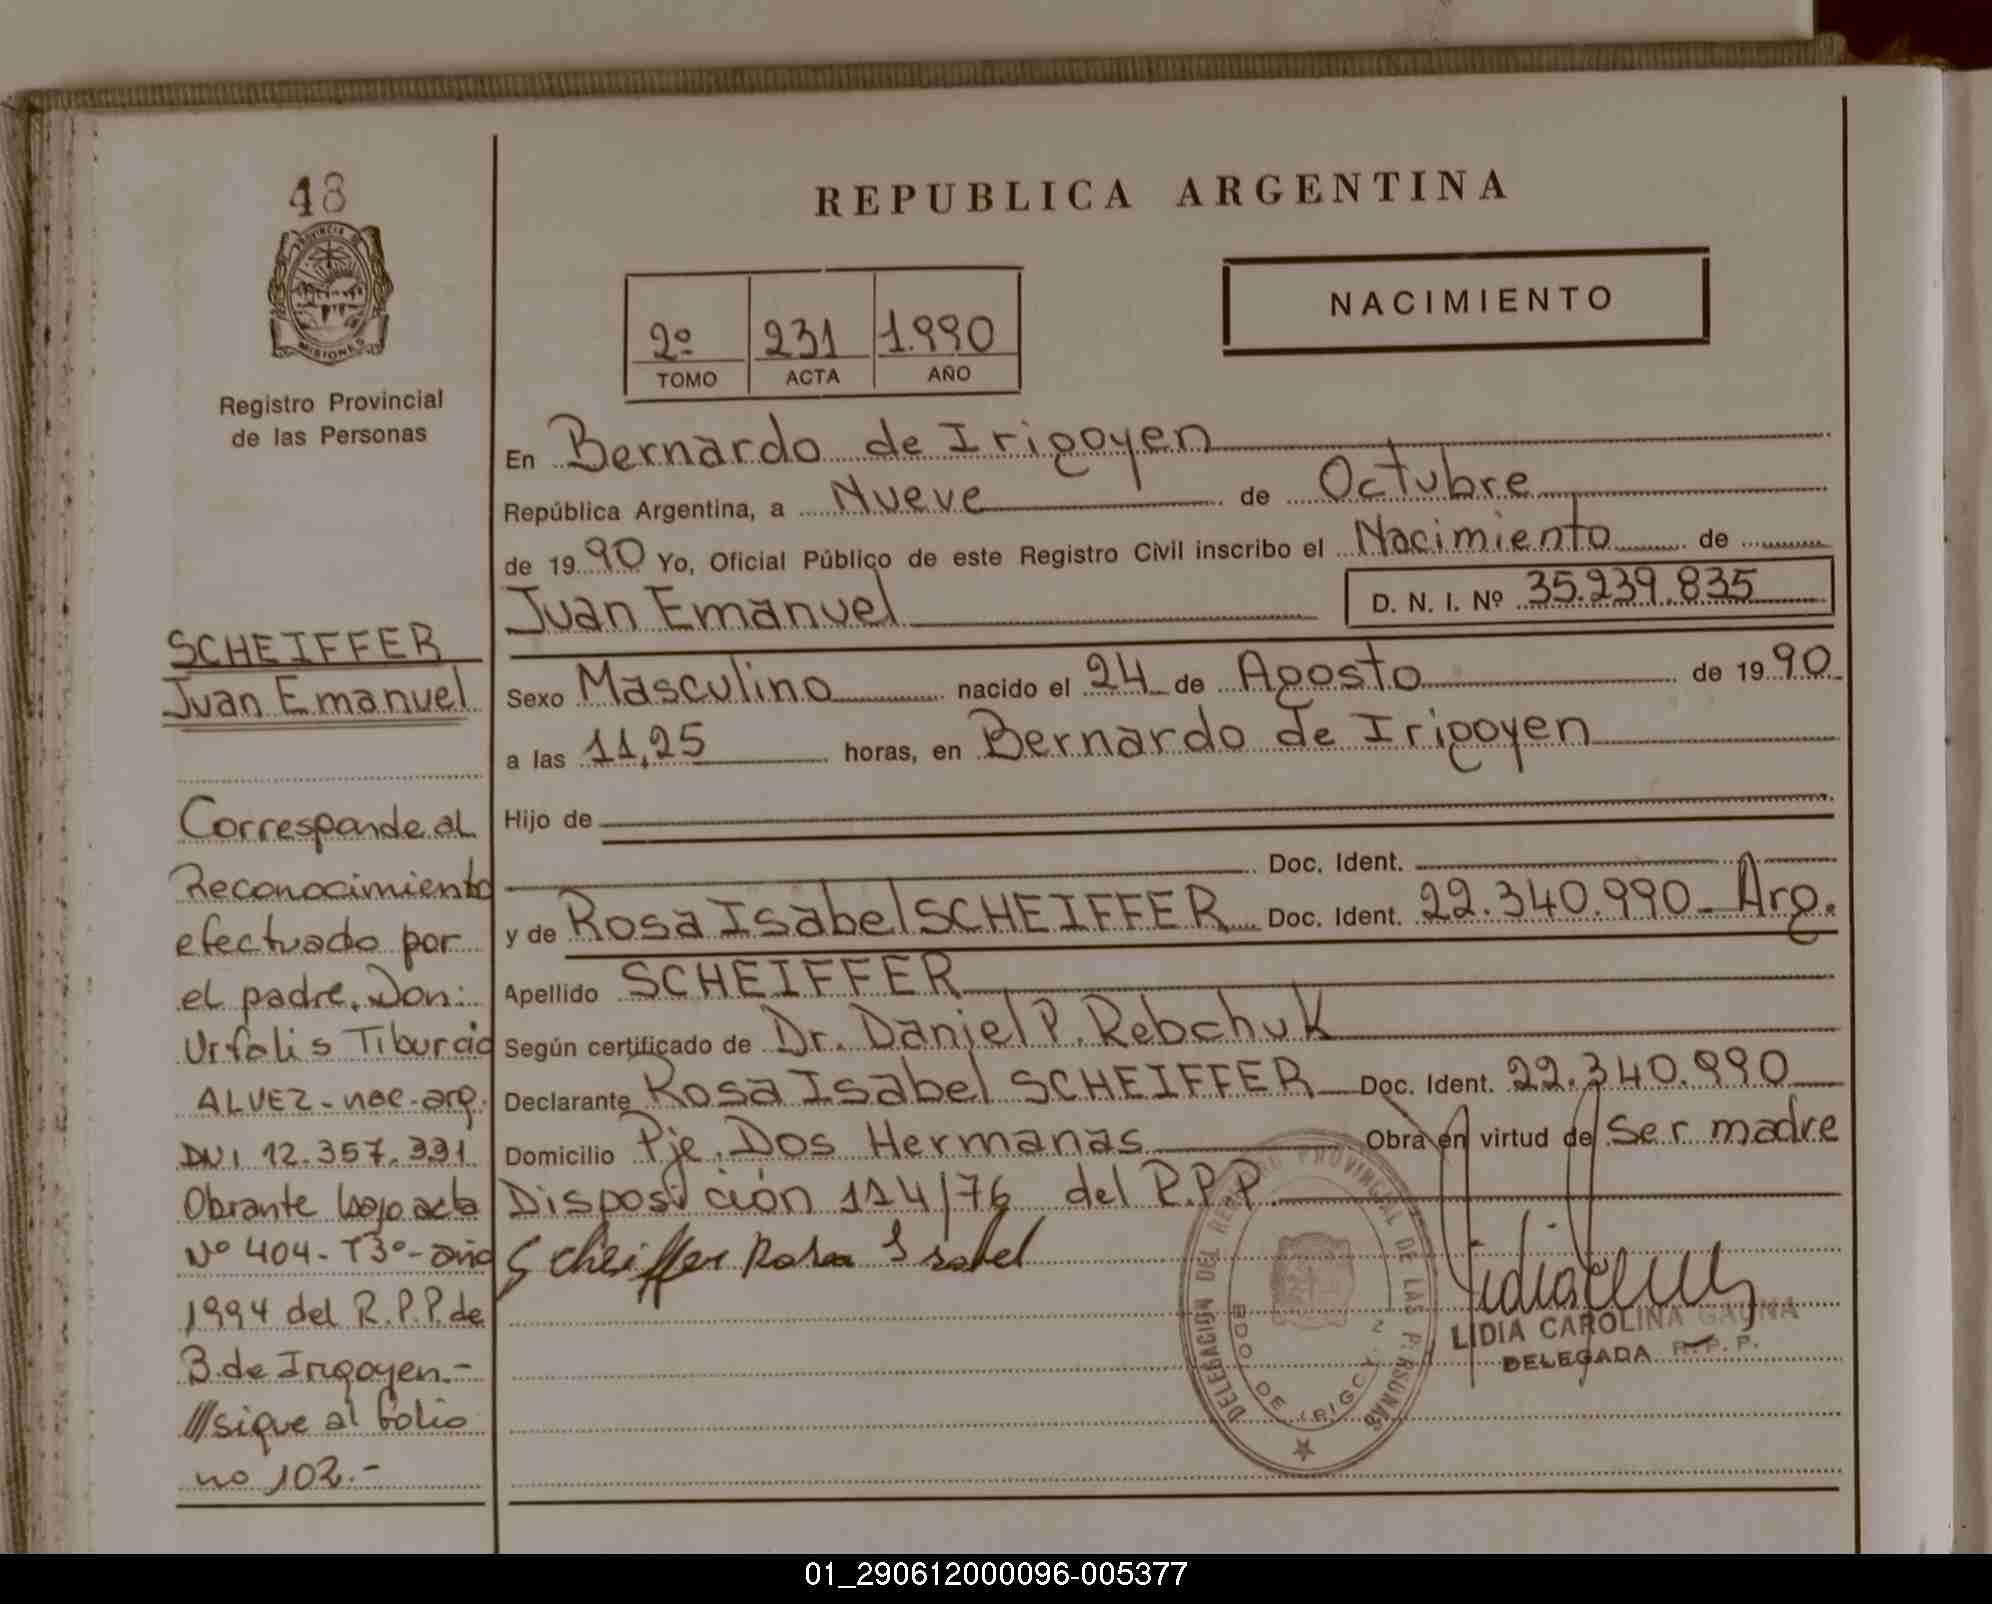 48
PROVINCIA DE
MISIONES
Registro Provincial
de las Personas
SCHEIFFER
Juan Emanuel
Corresponde al
Reconocimiento
efectuado por
el padre, Don:
Urfalis Tiburcio
ALVEZ - nac - arg.
DNI 12.357.331
Obrante bajo acta
Nº 404 - T3º - año
1994 del R.P.P. de
B. de Irigoyen.-
///sigue al folio
nº 102.-
REPUBLICA ARGENTINA
NACIMIENTO
2º 231 1.990
TOMO ACTA AÑO
En Bernardo de Irigoyen
República Argentina, a Nueve de Octubre
de 1990 Yo, Oficial Público de este Registro Civil inscribo el Nacimiento de
Juan Emanuel D. N. I. Nº 35.239.835
Sexo Masculino nacido el 24 de Agosto de 1990
a las 11,25 horas, en Bernardo de Irigoyen
Hijo de
Doc. Ident.
y de Rosa Isabel SCHEIFFER Doc. Ident. 22.340.990 - Arg.
Apellido SCHEIFFER
Según certificado de Dr. Daniel P. Rebchuk
Declarante Rosa Isabel SCHEIFFER Doc. Ident. 22.340.990
Domicilio Pje. Dos Hermanas Obra en virtud de Ser madre
Disposición 114/76 del R.P.P.
Scheiffer Rosa Isabel
DELEGACIÓN DEL REGISTRO PROVINCIAL DE LAS PERSONAS
BDO. DE IRIGOYEN
LIDIA CAROLINA GAUNA
DELEGADA R.P.P.
01_290612000096-005377